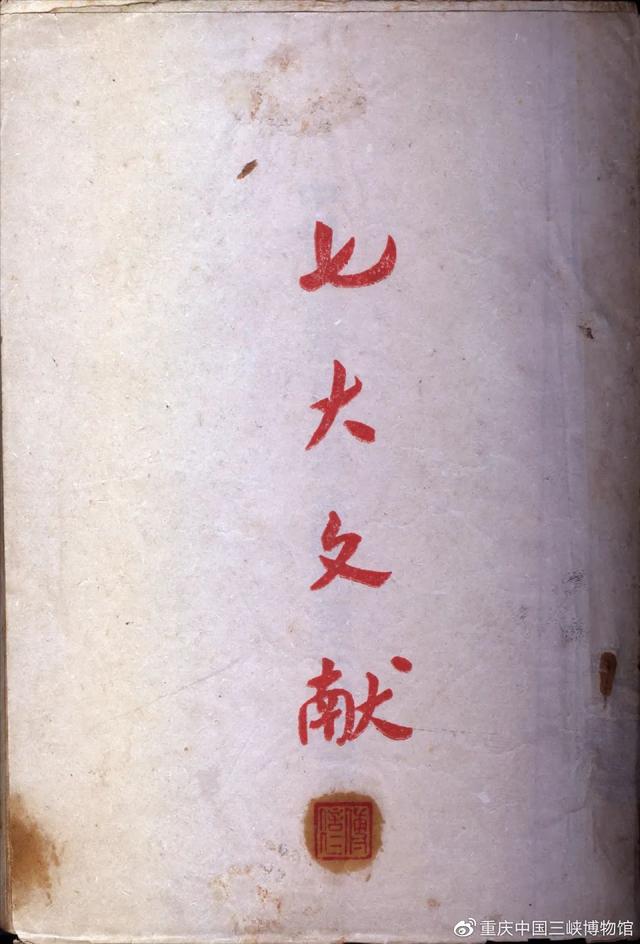 七大文献
重庆中国三峡博物馆